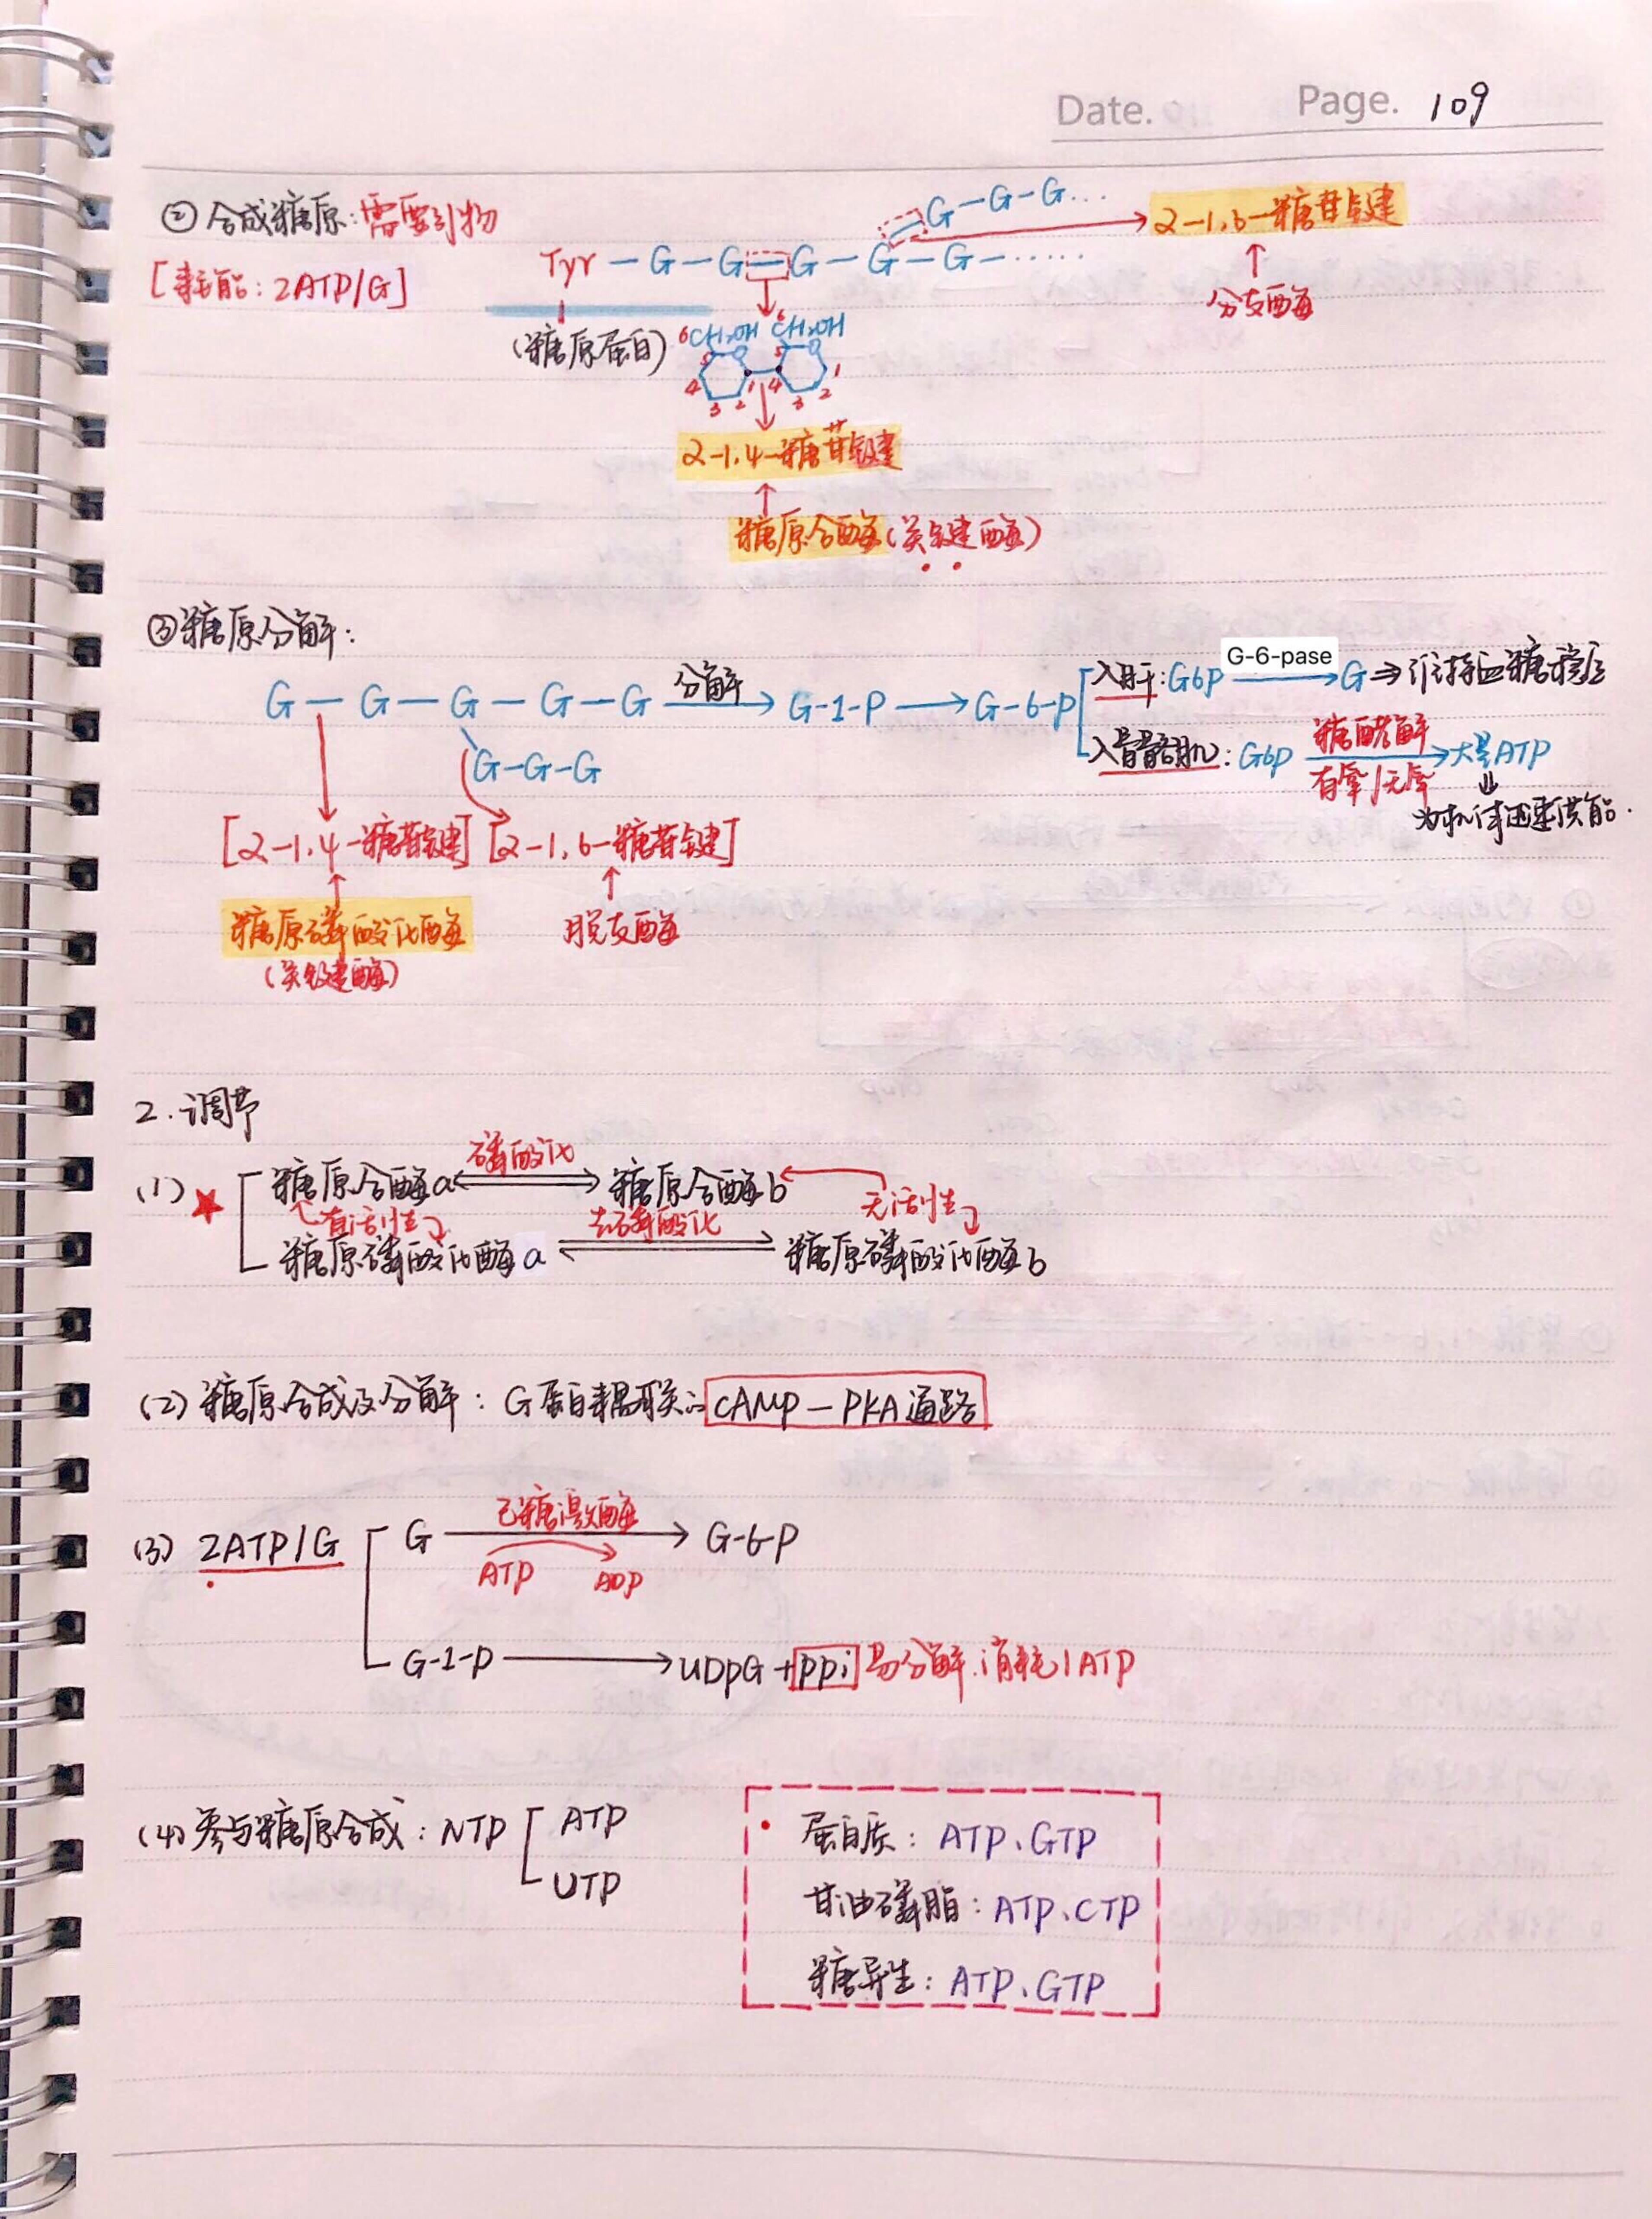 Date. Page. 109
② 合成糖原: 需要引物
G-G-G...
α-1,6-糖苷键
[耗能: 2ATP/G]
Tyr-G-G-G-G-G-......
分支酶
(糖原蛋白)
6CH₂OH 6CH₂OH
5 5
4 1 4 1
3 2 3 2
α-1,4-糖苷键
糖原合酶(关键酶)
③糖原分解:
G-G-G-G-G 分解 G-1-P → G-6-P
G-G-G
入肝: G6P G-6-pase → G ⇒ 维持血糖稳定
入骨骼肌: G6P 糖酵解 有氧/无氧 → 大量ATP
⇓
为机体迅速供能.
[α-1,4-糖苷键] [α-1,6-糖苷键]
糖原磷酸化酶 脱支酶
(关键酶)
2.调节
(1) ★ 糖原合酶a 磷酸化 糖原合酶b
有活性 去磷酸化 无活性
糖原磷酸化酶a 糖原磷酸化酶b
(2) 糖原合成及分解: G蛋白耦联的 cAMP-PKA通路
(3) 2ATP/G
G 己糖激酶 → G-6-P
ATP ADP
G-1-P → UDPG + PPi 易分解.消耗1ATP
(4) 参与糖原合成: NTP
ATP
UTP
蛋白质: ATP、GTP
甘油磷脂: ATP、CTP
糖异生: ATP、GTP